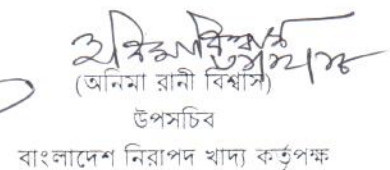 (অনিমা রানী বিশ্বাস)
উপসচিব
বাংলাদেশ নিরাপদ খাদ্য কর্তৃপক্ষ